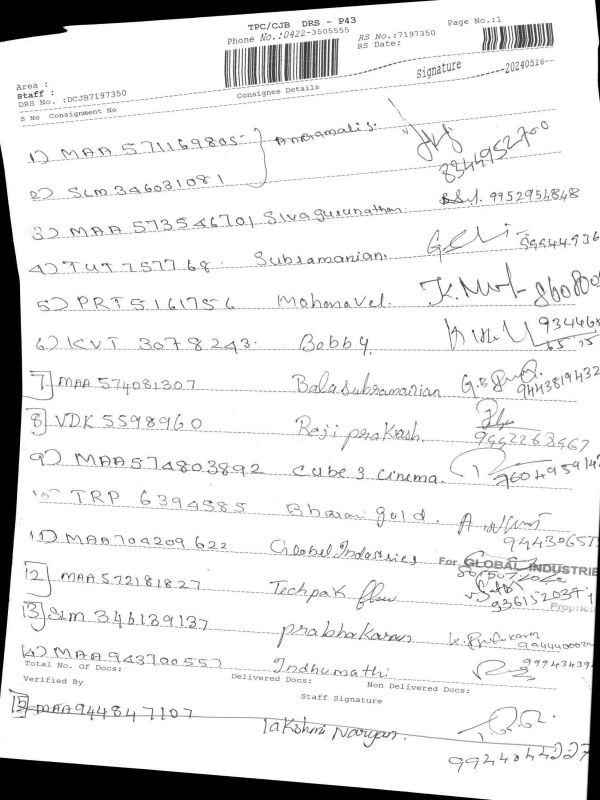 TPC/CJB DRS - P43
Phone No.:0422-3505555 RS No.:7197350 Page No.:1
RS Date:
Area :
Staff :
DRS No. :DCJB7197350 Signature --20240516--
S No Consignment No Consignee Details
1) MAA 571169805
8344952700
2) SLM 346031081
3) MAA 573546701 Sivagurunathan 9952954848
4) TUT 757768 Subramanian. 99944936
5) PRT 5161756 Mohanavel. 860800
6) KVT 3078243. Bobby. 934468
7) MAA 574081307 Balasubramanian 9443819432
8) VDK 5598960 Raji prakash. 9442268467
9) MAA 574803892 Cube 3 cinema. 760495914
10) TRP 6394585 Bharani gold. 944306571
11) MAA 704209622 Global Industries For GLOBAL INDUSTRIE
12) MAA 572181827 Techpak flow
Proprie
13) SLM 346139137 prabhakaran
14) MAA 943700557 Indhumathi 99943439
Total No. of Docs: Delivered Docs: Non Delivered Docs:
Verified By Staff Signature
15) MAA 944847107 Lakshmi Narayan. 9944044227